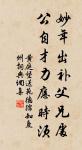 妙年出补父兄处
公自才力应时须
黄庭坚送范德孺知庆
州词典调寄